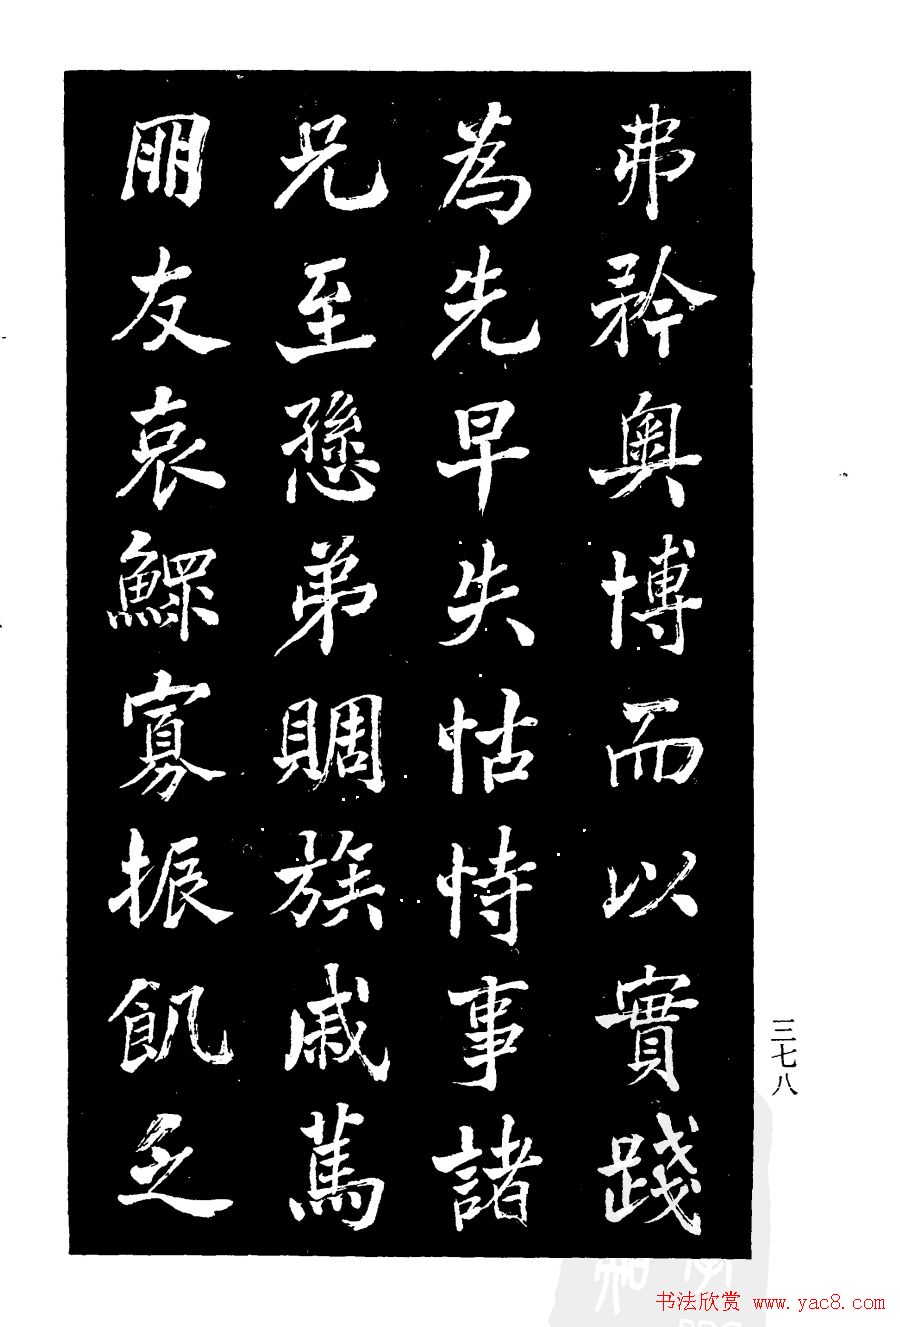 弗矜奧博而以實踐
為先早失怙恃事諸
兄至愻弟賙族戚篤
朋友哀鰥寡振飢乏
三七八
书法欣赏 www.yac8.com